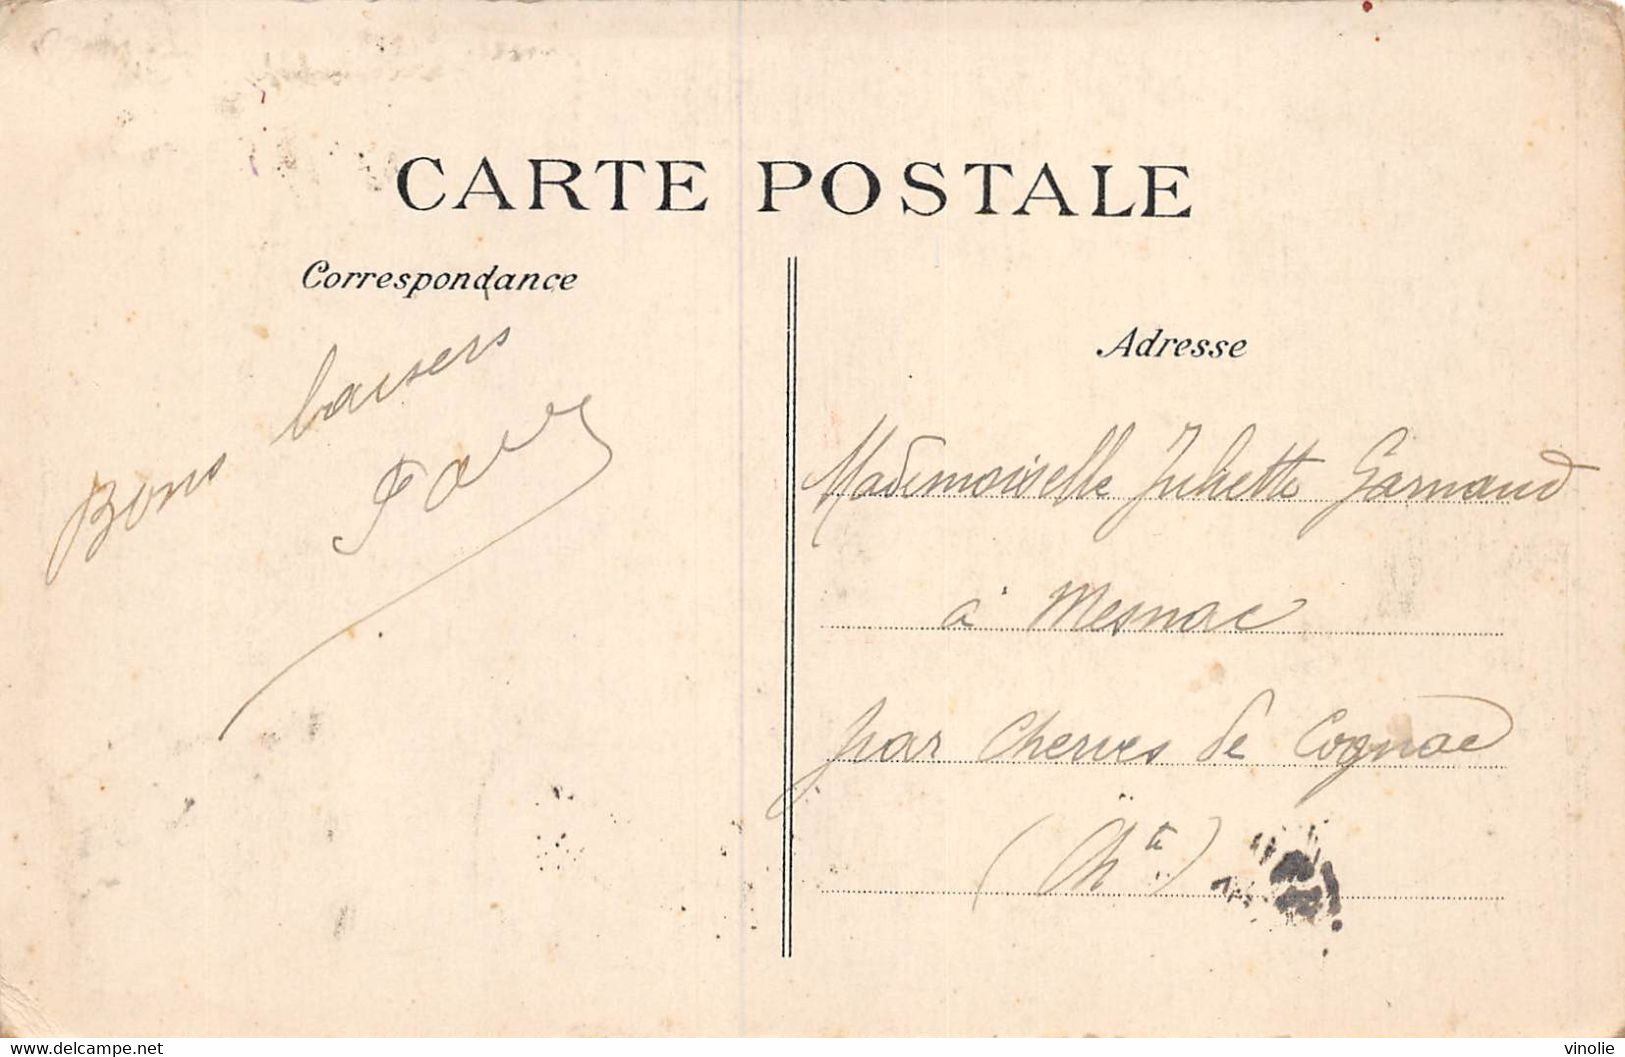 CARTE POSTALE
Correspondance
Bons baisers
Adresse
Mademoiselle Juliette Garnaud
à Mesnac
par Cherves de Cognac
(Ch te)
www.delcampe.net
vinolie